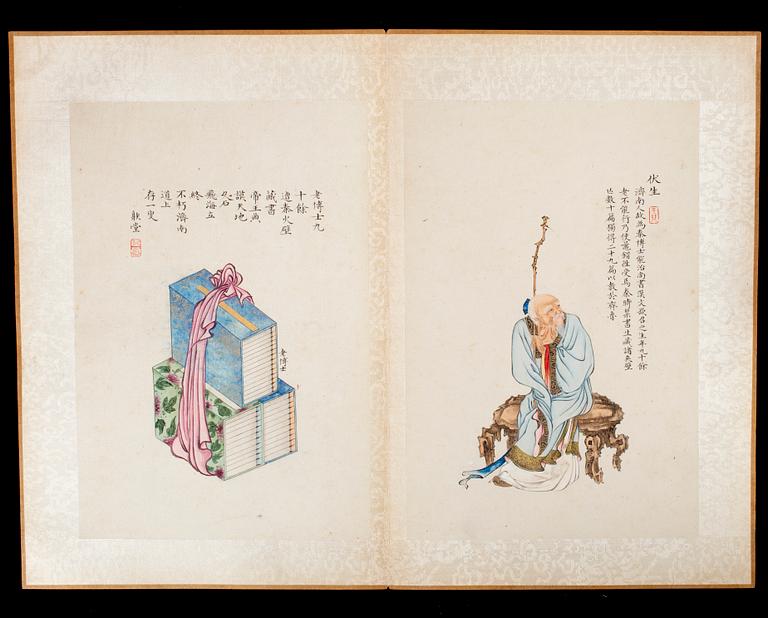 伏生
濟南人故為秦博士能治尚書漢文欲召之生年九十餘
老不能行乃使鼂錯往受焉秦時禁書生藏諸夾壁
亡數十篇獨得二十九篇以教於齊魯
老博士九
十餘
遭秦火壁
藏書
帝王典
謨天地
石
海立
終
不朽濟南
道上
存一叟
堂
老博士